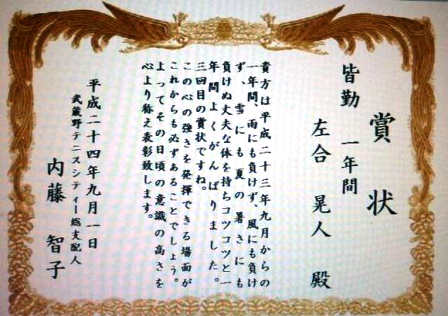 賞状
皆勤 一年間
左合 晃人 殿
貴方は平成二十三年九月からの
一年間、雨にも負けず、風にも負け
ず、雪にも夏の暑さにも
負けぬ丈夫な体を持ちコツコツと一
年間よくがんばりました。
三回目の賞状ですね。
この心の強さを発揮できる場面が
これからも必ずあることでしょう。
よってその日頃の意識の高さを
心より称え表彰致します。
平成二十四年九月一日
武蔵野テニスシティー総支配人
内藤 智子